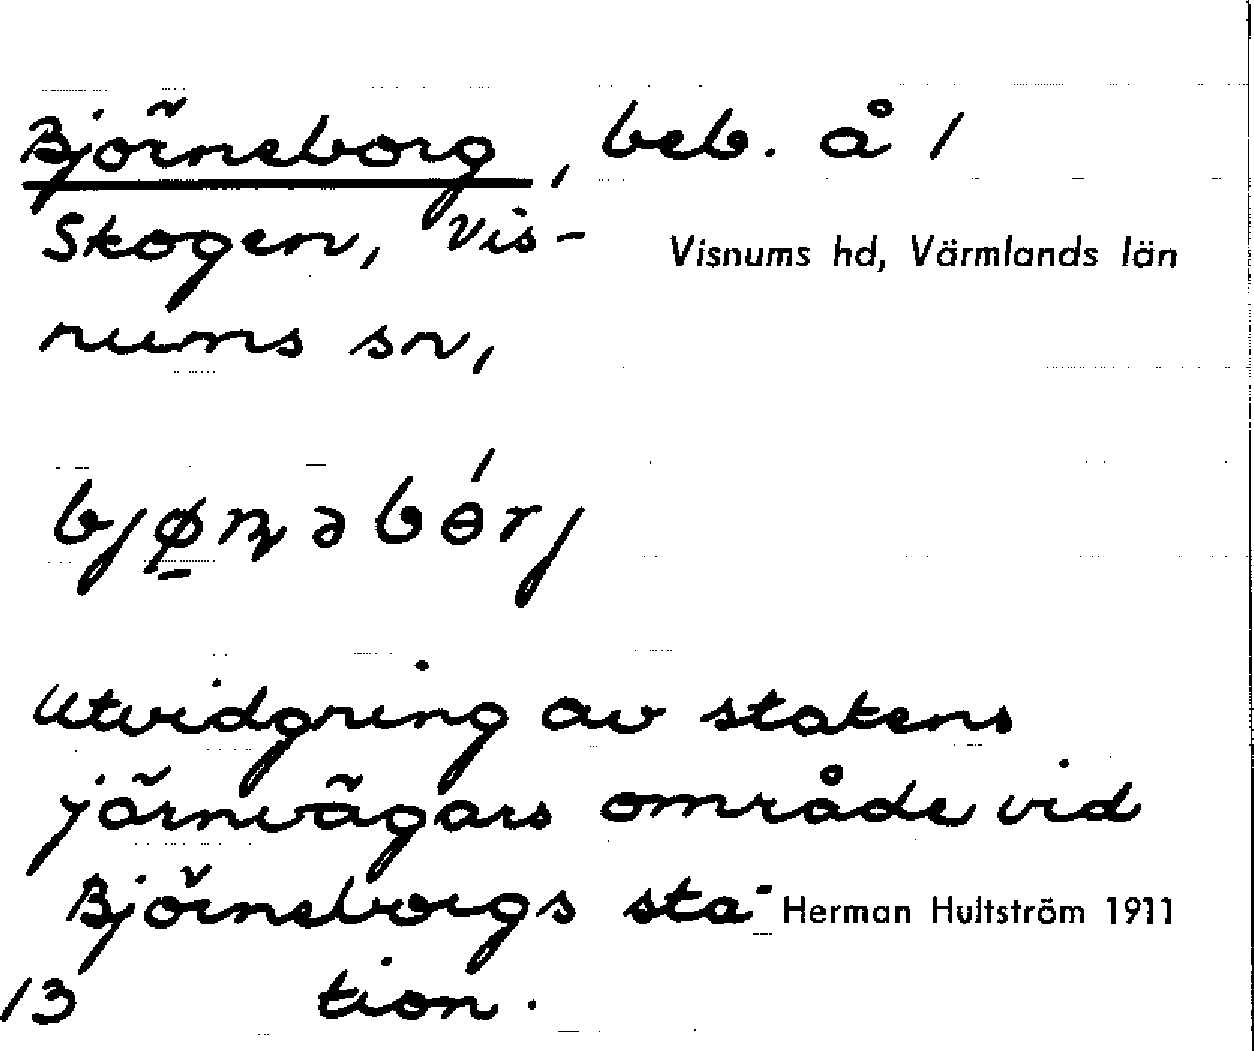 Björneborg, beb. å 1
Skogen, Vis-
nums sn,
Visnums hd, Värmlands län
bjø̱ɳəbɵ́rj
Utvidgning av statens
järnvägars område vid
Björneborgs sta-
tion.
Herman Hultström 1911
13